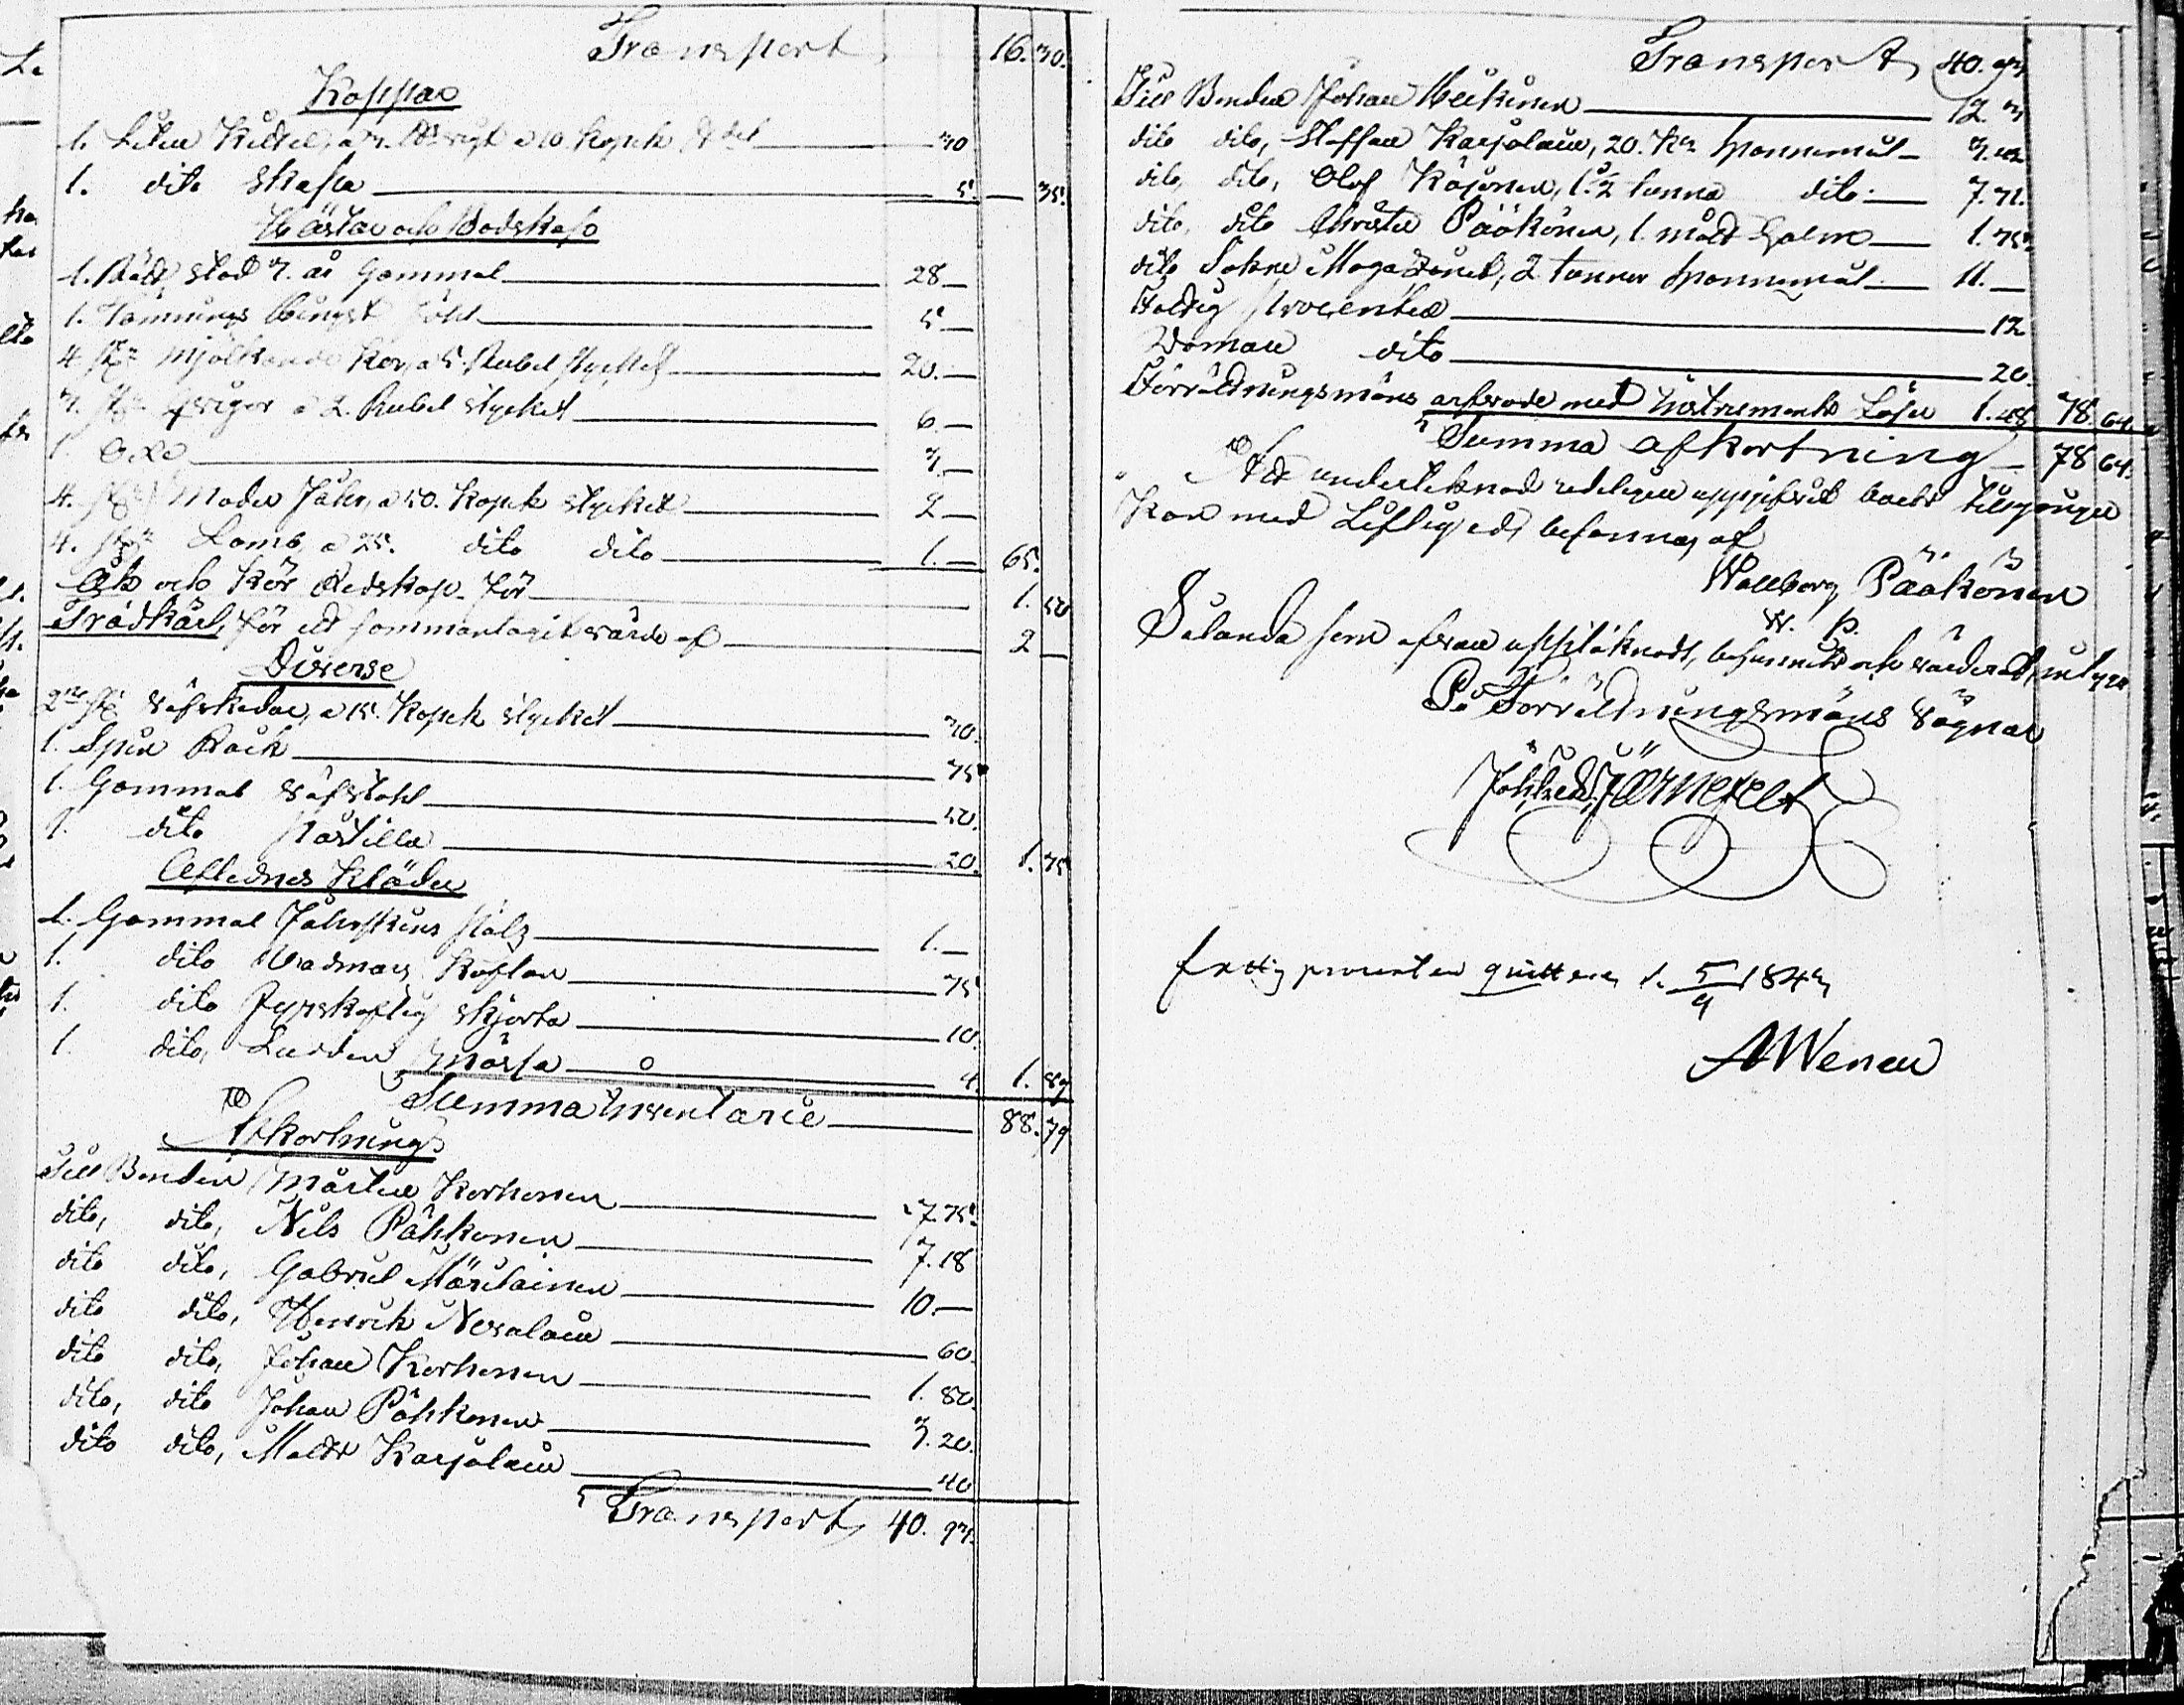 Transport 16. 30.
Koppar
1. Liten Kittel, a 3. vigt a 10 Kopek 30
1. dito skefva 5. 35.
Hästar och Bodskap
1. stod 7. år Gammal 28
1. Hingst 5
4. st: Mjölkande Kor, a 5 Rubel stycket 20.
3. st: qvigor a 2. Rubel stycket 6.
1. Oxe 3.
4. st: Moder Fåhr, a 50. Kopek stycket 2
4. st: Lamb, a 25. dito dito 1. 65.
Åk och Kör Redskap för 1. 50
Trädkäril, för ett sammantagit värde af 2
Diverse
2ne st: Väfskedar, a 15. Kopek stycket 30.
1. Spin Rock 75
1. Gammal Väfstohl 50.
1. dito Postilla 20. 1. 75
Aflednes Kläder
1. Gammal Fåhrskins Pälz 1.
1. dito Vadmars Kaftan 75
1. dito Fyrskaftig skjorta 10.
1. dito, Ludden Mössa 4. 1. 89
Summa Inventarie 88. 79
Afkortning
Till Bonden Mårten Korhonen 7. 75.
dito, dito, Nils Påhkonen 7. 18
dito dito, Gabriel Määttäinen 10.
dito dito, Henrik Nevalain 60.
dito dito, Johan Korhonen 1. 80.
dito, dito Johan Påhkonen 3. 20.
dito dito, Matts Karjalain 40
Transport 40. 93.
Transport 40. 93
Till Bonden Johan Heikinen 12.
dito dito, Staffan Karjalain, 20. Kr spannemål 3.
dito, dito, Olof Käjönen, 1 1/2 tunna dito: 7. 71.
dito, dito Christer Pääkönen, 1. mått Halm 1. 75
dito Sokne Magazinet, 2 tunnor spannemål 11.
Fattig procenten 12
Domau dito 20.
Förrättningsmäns arfvode med Instruments Lösen 1. 48 78. 64.
Summa afkortning 78 64.
Att undertecknad redeligen uppgifvit boets tillgångar
Kan med Liflig ed, bekännes af
Wallborg Pääkönen
Sålunda som ofvan upptecknadt, befunnits och värderadt, intyga
På Förrättningsmäns Vägnar
Järnefelt
Fattig procenten quitteras d. 5/9 1843
A Wenen